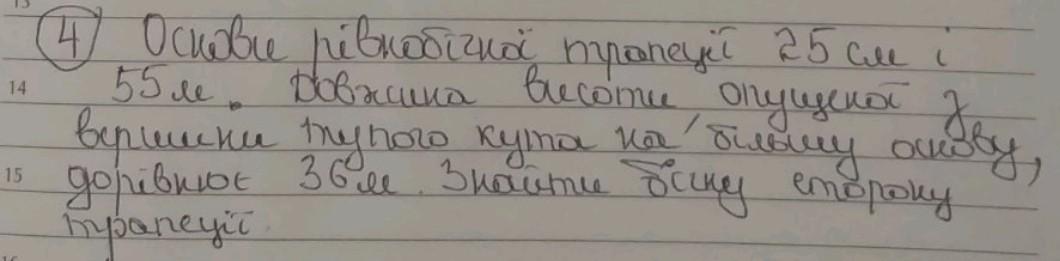 13
④ Основи рівнобічної трапеції 25 см і
14 55 м. Довжина висоти опущеної з
вершини тупого кута на більшу основу,
15 дорівнює 36 м. Знайти бічну сторону
трапеції.